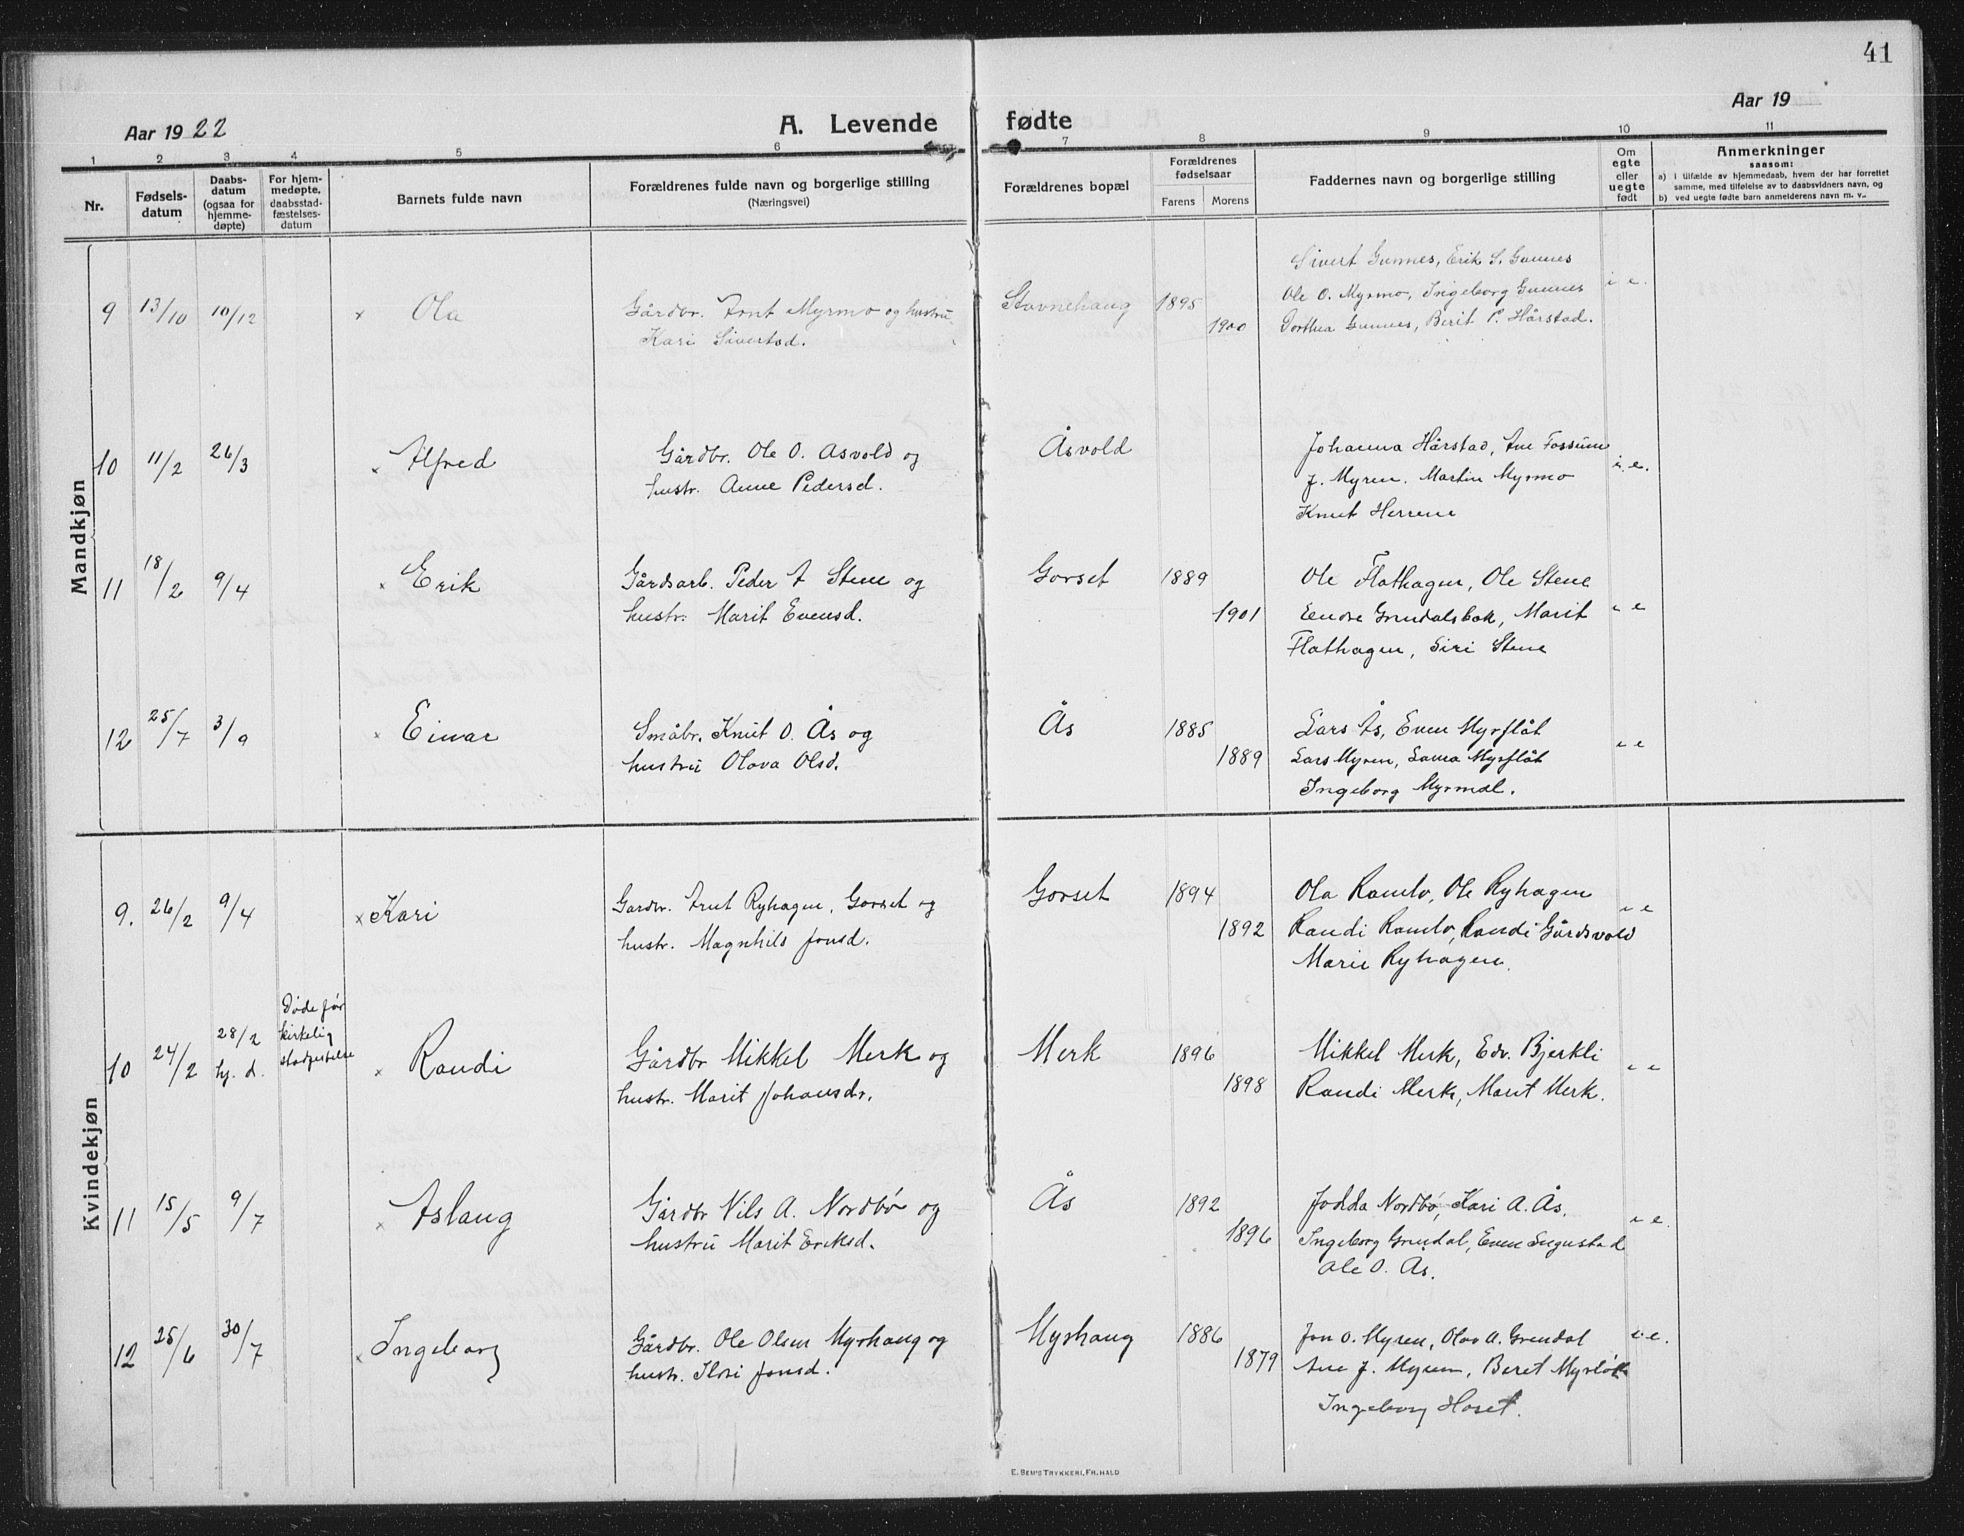 41
Aar 1922
A. Levende fødte
Aar 19
1 2 3 4 5 6 7 8 9 10 11
Nr.
Fødsels-
datum
Daabs-
datum
(ogsaa for
hjemme-
døpte)
For hjem-
medøpte,
daabsstad-
fæstelses-
datum
Barnets fulde navn
Forældrenes fulde navn og borgerlige stilling
(Næringsvei)
Forældrenes bopæl
Forældrenes
fødselsaar
Farens Morens
Faddernes navn og borgerlige stilling
Om
egte
eller
uegte
født
Anmerkninger
saasom:
a) i tilfælde av hjemmedaab, hvem der har forrettet
samme, med tilføielse av to daabsvidners navn, og
b) ved uegte fødte barn anmelderens navn m. v..
Mandkjøn
9 13/10 10/12 × Ola
Gårdbr. Arnt Myrmo og hustru
Kari Sivertsd.
Stavnehaug 1895
1900
Sivert Gunnes, Erik S. Gunnes
Ole O. Myrmo, Ingeborg Gunnes
Dorthea Gunnes, Berit P. Hårstad.
i e.
10 11/2 26/3 × Alfred
Gårdbr. Ole O. Asvold og
hustr. Anne Pedersd.
Åsvold
Johanna Hårstad, Ane Fossum
J. Myren. Martin Myrmo
Knut Herrene
i. e.
11 18/2 9/4 × Erik
Gårdsarb. Peder A Stene og
hustr. Marit Evensd.
Gorset 1889
1901
Ole Flathagen, Ole Stene
Eendre Grendalsbak, Marit
Flathagen, Siri Stene
i e
12 25/7 3/9 × Einar
Småbr. Knut O. Ås og
hustru Olava Olsd.
Ås 1885
1889
Lars Ås, Even Myrflåt
Lars Myren, Lama Myrflåt
Ingeborg Myrmæl.
i e
Kvindekjøn
9. 26/2 9/4 × Kari
Gardbr. Arnt Ryhagen, Gorset og
hustr. Magnhild Jonsd.
Gorset 1894
1892
Ola Ramlo, Ole Ryhagen
Randi Ramlo, Randi Gårdsvold
Marie Ryhagen.
i e
10 24/2 28/2
hj. d.
Døde før
kirkelig
stadfestelse
× Randi
Gårdbr Mikkel Merk og
hustr. Marit Johansdr.
Merk 1896
1898
Mikkel Merk, Edv. Bjerkli
Randi Merk, Marit Merk.
i e
11 15/5 9/7 × Aslaug
Gårdbr Nils A. Nordbø og
hustru Marit Eriksd.
Ås 1892
1896
Jodda Nordbø, Kari A. Ås.
Ingeborg Grendal, Even Engustad
Ole O. Ås.
i e.
12 25/6 30/7 × Ingeborg
Gårdbr. Ole Olsen Myrhaug og
hustr. Jonsd.
Myrhaug 1886
1879
Jon O. Myren, Olav A. Grendal
Ane J. Myren, Beret Myrløk
Ingeborg Horet.
i e.
E. Sem's Trykkeri, Fr.hald